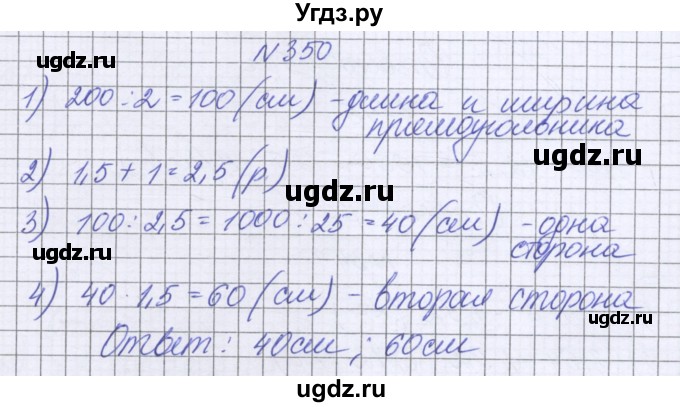 Угдз.ру
N350
ugdz.ru ugdz.ru
1) 200:2=100(см) -длина и ширина
прямоугольника
ugdz.ru
2) 1,5+1=2,5(р)
ugdz.ru
3) 100:2,5=1000:25=40(см) -одна
ugdz.ru сторона
4) 40·1,5=60(см) - вторая сторона
ugdz.ru
Ответ: 40см; 60см
ugdz.ru